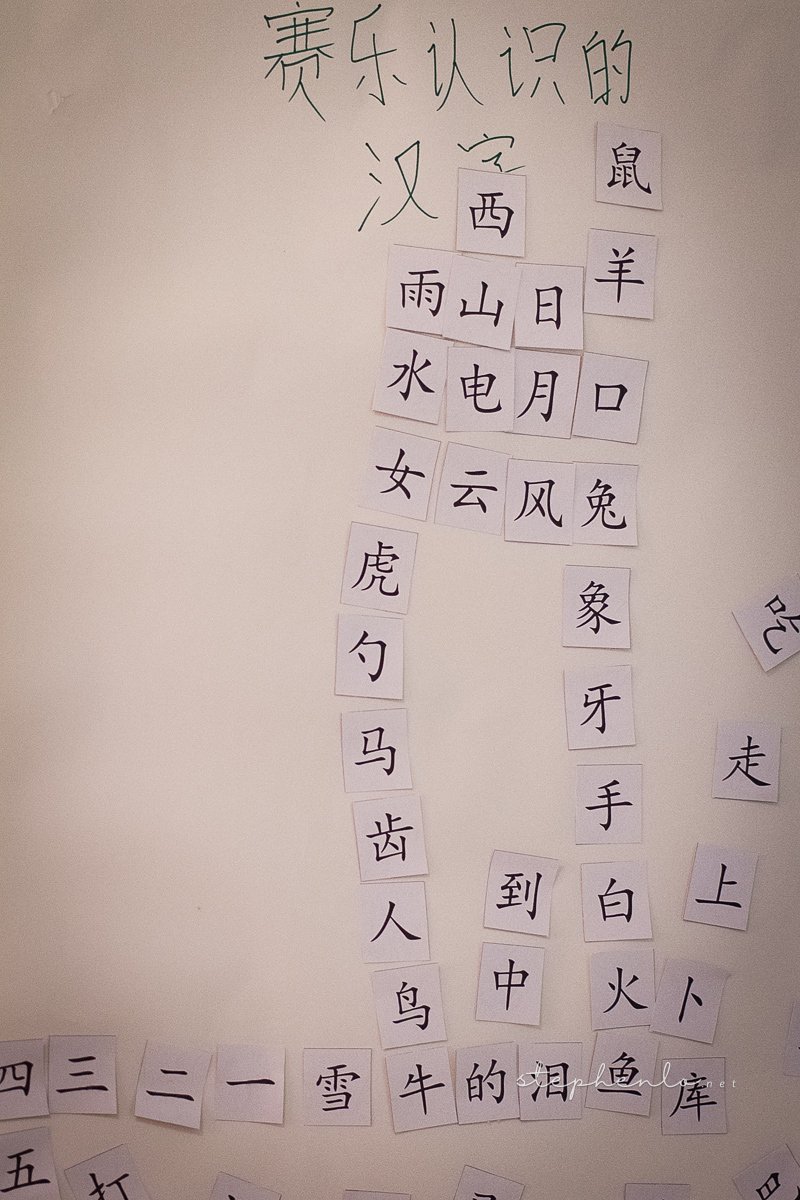 赛乐认识的
汉字
鼠
西
羊
雨山日
水电月口
女云风兔
虎
象
吃
勺
牙
马
走
手
齿
到
白
上
人
中
火卜
鸟
四三二一雪牛的泪鱼库
stephenlo.net
五打